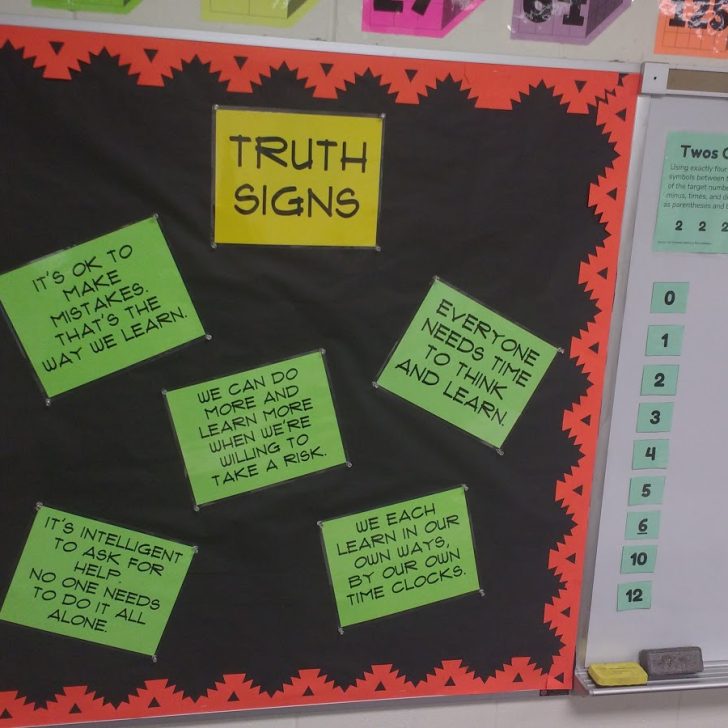 27
64
125
TRUTH
SIGNS
IT'S OK TO
MAKE
MISTAKES.
THAT'S THE
WAY WE LEARN.
EVERYONE
NEEDS TIME
TO THINK
AND LEARN.
WE CAN DO
MORE AND
LEARN MORE
WHEN WE'RE
WILLING TO
TAKE A RISK.
IT'S INTELLIGENT
TO ASK FOR
HELP.
NO ONE NEEDS
TO DO IT ALL
ALONE.
WE EACH
LEARN IN OUR
OWN WAYS,
BY OUR OWN
TIME CLOCKS.
Twos
Using exactly four
symbols between
of the target
minus, times, and
as parentheses and
2 2 2
0
1
2
3
4
5
6
10
12